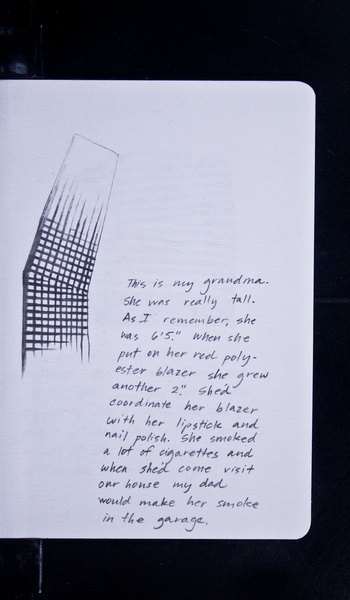 This is my grandma.
She was really tall.
As I remember, she
was 6'5." When she
put on her red poly-
ester blazer she grew
another 2." She'd
coordinate her blazer
with her lipstick and
nail polish. She smoked
a lot of cigarettes and
when she'd come visit
our house my dad
would make her smoke
in the garage.